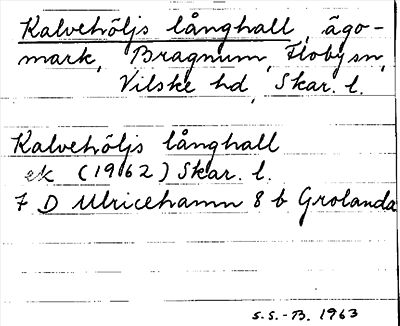 Kalvehöljs långhall, ägo-
mark, Bragnum, Flobysn,
Vilske hd, Skar. l.
Kalvehöljs långhall
ek (1962) Skar. l.
7 D Ulricehamn 8 b Grolanda
S.S.-B. 1963